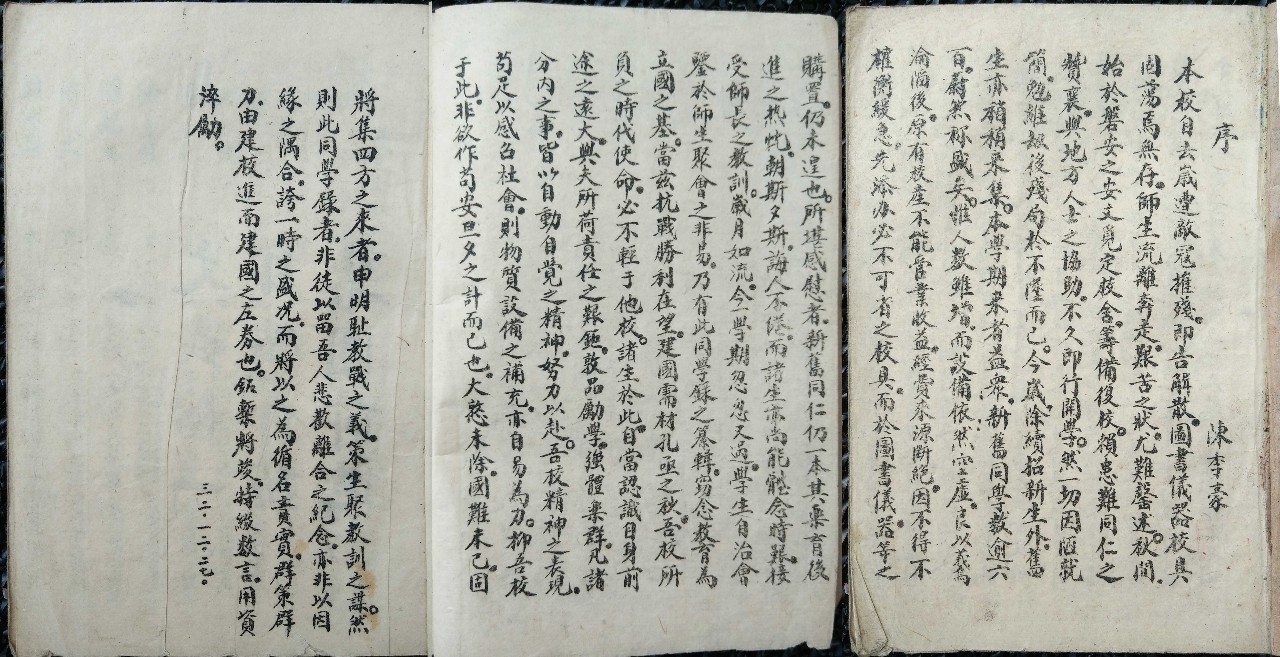 序
陳李豪
本校自去歲遭敵寇摧殘，即告解散，圖書儀器校具
囘蕩焉無存。師生流離奔走，艱苦之狀，尤難罄述。秋間，
始於磐安之安文覓定校舍，籌備復校，賴患難同仁之
贊襄，與地方人士之協助，不久即行開學。然一切因陋就
簡，勉維劫後殘局於不墜而已。今歲除續招新生外，舊
生亦稍稍來集。本學期來者益衆，新舊同學數逾六
百，蔚然稱盛矣。惟人數雖增，而設備依然空虛，良以義烏
淪陷後，原有校產不能營業收益，經費來源斷絕，因不得不
權衡緩急，先給办必不可省之校具，而於圖書儀器等之
購置，仍未遑也。所堪感慰者，新舊同仁仍一本其樂育後
進之热忱，朝斯夕斯，誨人不倦，而諸生亦尚能體念時艱，接
受師長之教訓。歲月如流，今一學期忽忽又過，學生自治會
鑒於師生聚會之非易，乃有此同學錄之纂輯。竊念教育為
立國之基，當兹抗戰勝利在望，建國需材孔亟之秋，吾校所
負之時代使命，必不輕于他校。諸生於此，自當認識自身前
途之遠大，與夫所荷責任之艱鉅，敦品勵學，強體樂群，凡諸
分内之事，皆以自動自覺之精神，努力以赴。吾校精神之表現，
苟足以感召社會，則物質設備之補充，亦自易為力。抑吾校
于此，非欲作苟安旦夕之計而已也。大憝未除，國難未已，固
將集四方之來者，申明耻教戰之義，策生聚教訓之謀。然
則此同學錄者，非徒以留吾人悲歡離合之紀念，亦非以因
緣之隅合，誇一時之盛况，而將以之為循名責實，群策群
力，由建校進而建國之左券也。鉛槧將竣，特綴數言，用資
淬勵。
三二·一二·二七·